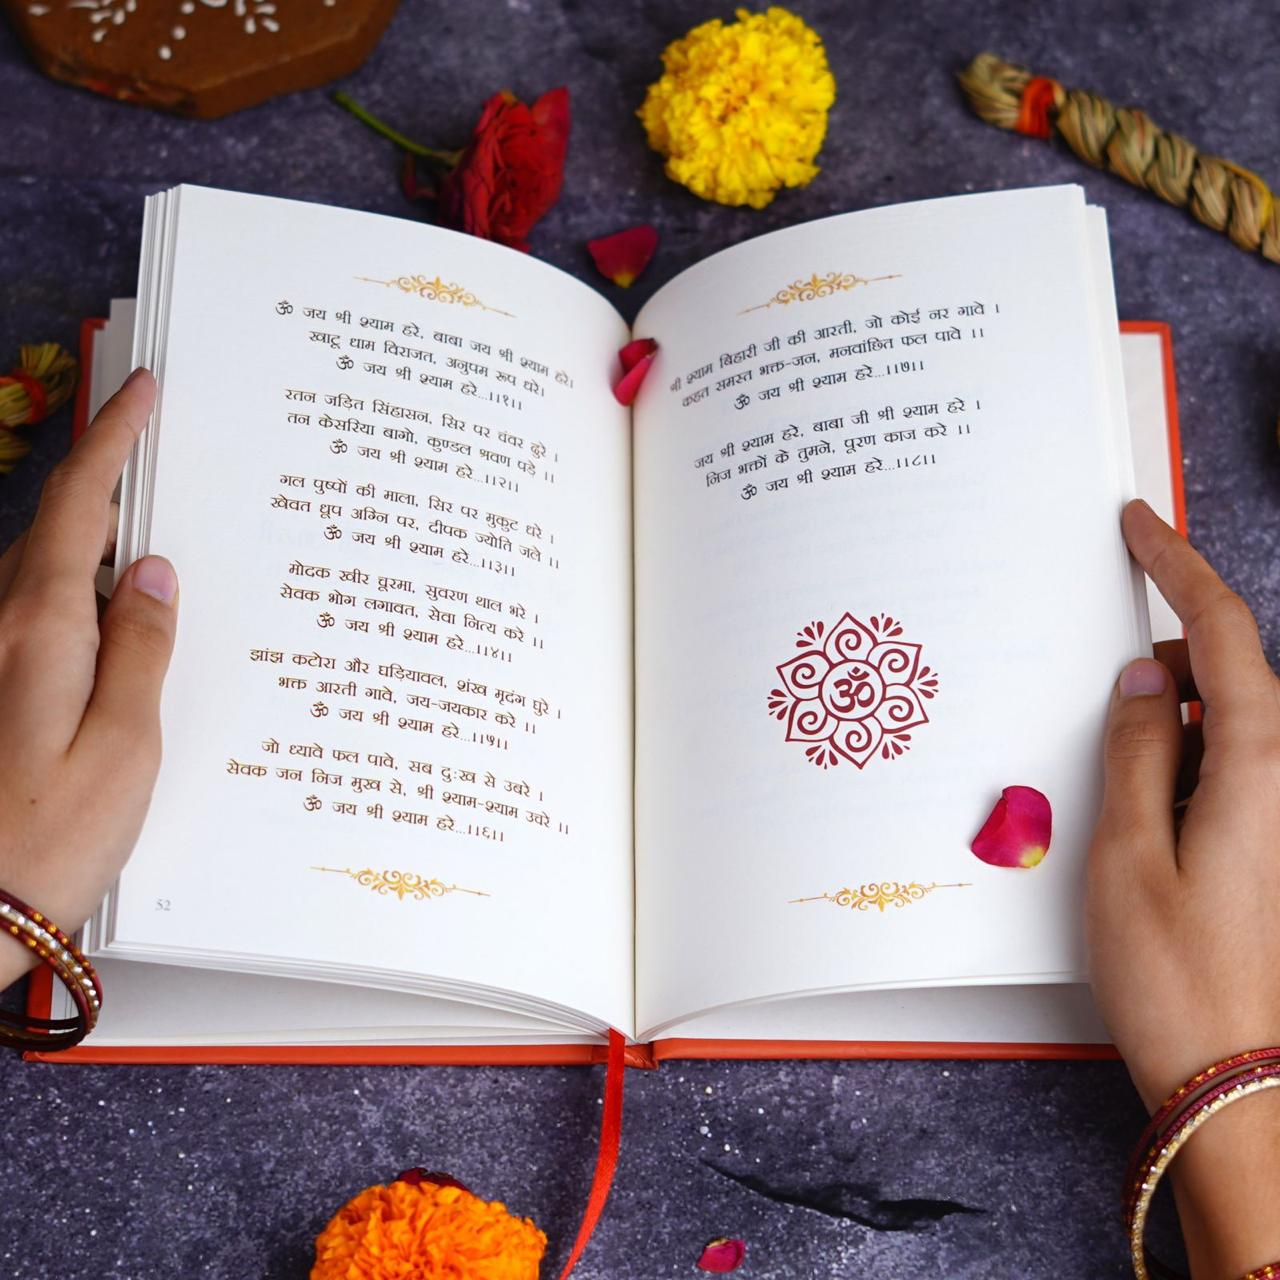 ॐ जय श्री श्याम हरे, बाबा जय श्री श्याम हरे।
खाटू धाम विराजत, अनुपम रूप धरे।
ॐ जय श्री श्याम हरे...।।१।।
रतन जड़ित सिंहासन, सिर पर चंवर ढुरे ।
तन केसरिया बागो, कुण्डल श्रवण पड़े ।।
ॐ जय श्री श्याम हरे...।।२।।
गल पुष्पों की माला, सिर पर मुकुट धरे ।
खेवत धूप अग्नि पर, दीपक ज्योति जले ।।
ॐ जय श्री श्याम हरे...।।३।।
मोदक खीर चूरमा, सुवरण थाल भरे ।
सेवक भोग लगावत, सेवा नित्य करे ।।
ॐ जय श्री श्याम हरे...।।४।।
झांझ कटोरा और घड़ियावल, शंख मृदंग घुरे ।
भक्त आरती गावे, जय-जयकार करे ।।
ॐ जय श्री श्याम हरे...।।५।।
जो ध्यावे फल पावे, सब दुःख से उबरे ।
सेवक जन निज मुख से, श्री श्याम-श्याम उचरे ।।
ॐ जय श्री श्याम हरे...।।६।।
52
श्री श्याम बिहारी जी की आरती, जो कोई नर गावे ।
कहत समस्त भक्त-जन, मनवांछित फल पावे ।।
ॐ जय श्री श्याम हरे...।।७।।
जय श्री श्याम हरे, बाबा जी श्री श्याम हरे ।
निज भक्तों के तुमने, पूरण काज करे ।।
ॐ जय श्री श्याम हरे...।।८।।
ॐ